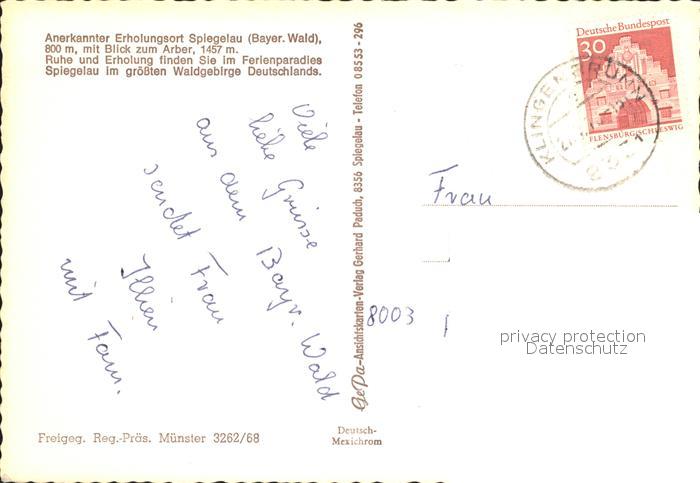 Anerkannter Erholungsort Spiegelau (Bayer. Wald),
800 m, mit Blick zum Arber, 1457 m.
Ruhe und Erholung finden Sie im Ferienparadies
Spiegelau im größten Waldgebirge Deutschlands.
Viele
liebe Grüsse
aus dem Bayr. Wald
sendet Frau
Illien
mit Fam.
Freigeg. Reg.-Präs. Münster 3262/68
GePa-Ansichtskarten-Verlag Gerhard Paduch, 8356 Spiegelau - Telefon 0 85 53 - 296
Deutsch-
Mexichrom
Deutsche Bundespost
30
FLENSBURG/SCHLESWIG
KLINGENBRUNN
Frau
8003
privacy protection
Datenschutz